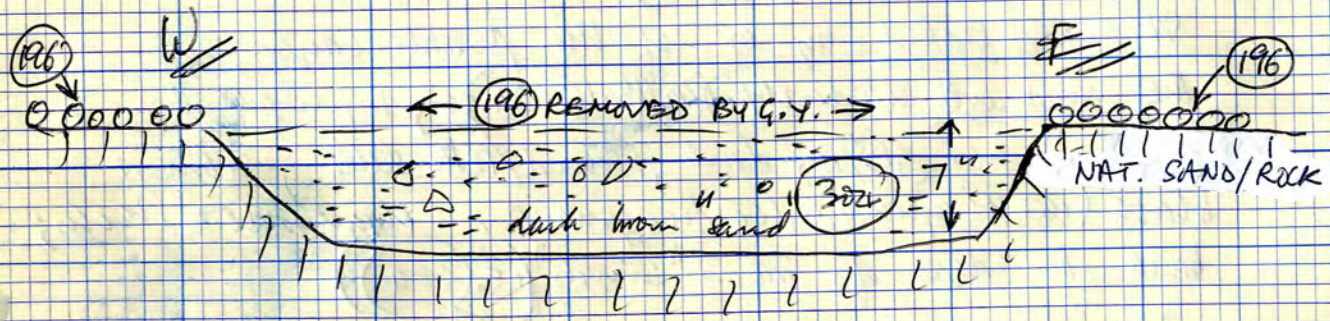 W E
196 196
← 196 REMOVED BY G.Y. →
7"
NAT. SAND/ROCK
dark brown sand